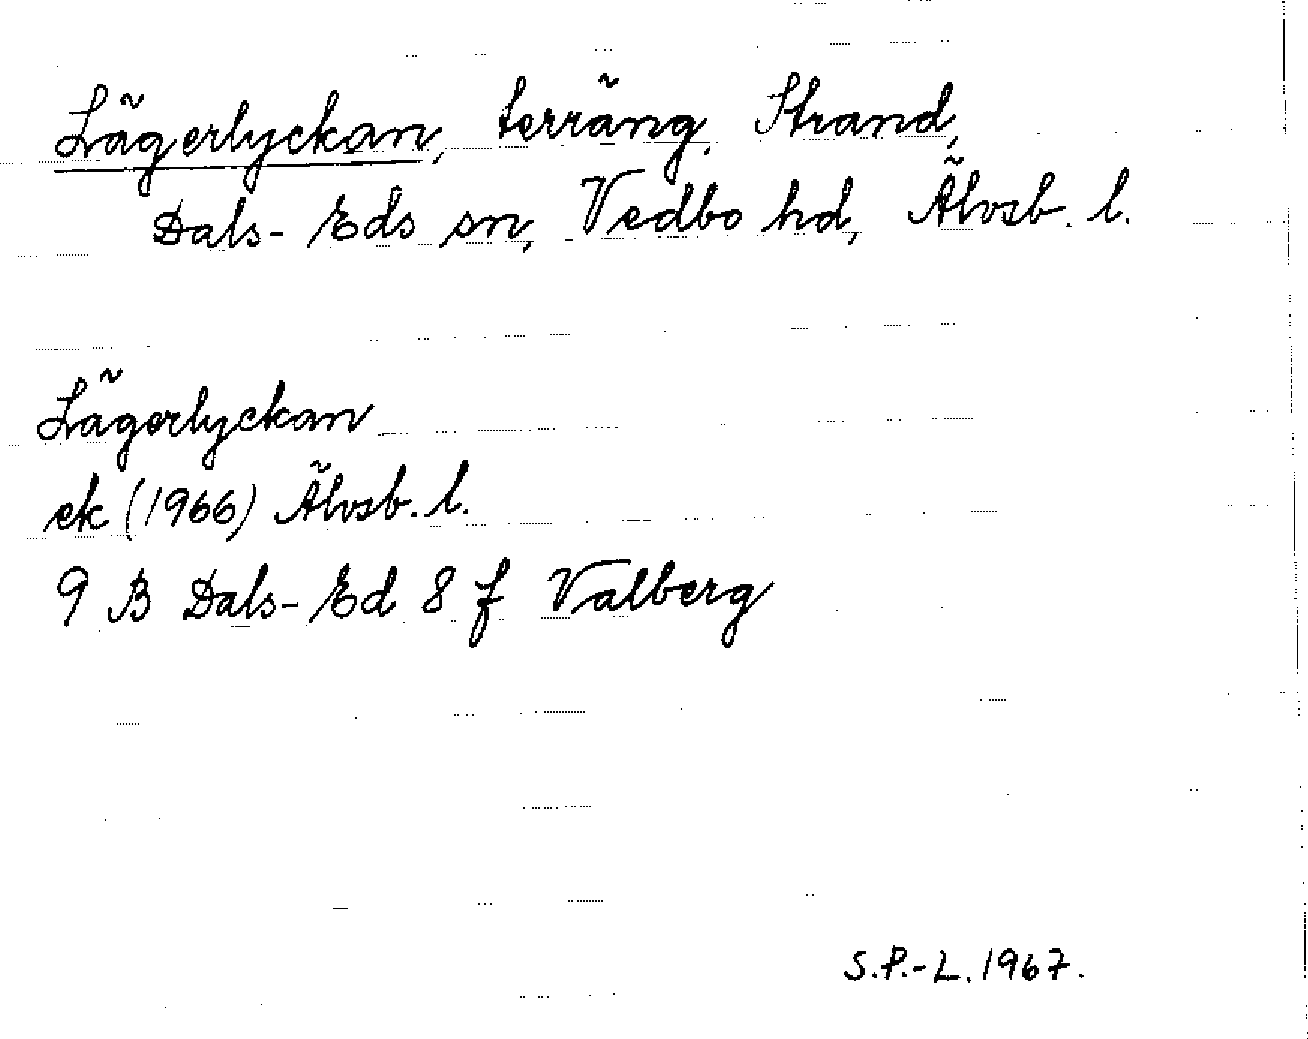 Lägerlyckan, terräng, Strand,
Dals-Eds sn, Vedbo hd, Älvsb. l.
Lägerlyckan
ek (1966) Älvsb. l.
9 B Dals-Ed 8 f Valberg
S.P.-L. 1967.